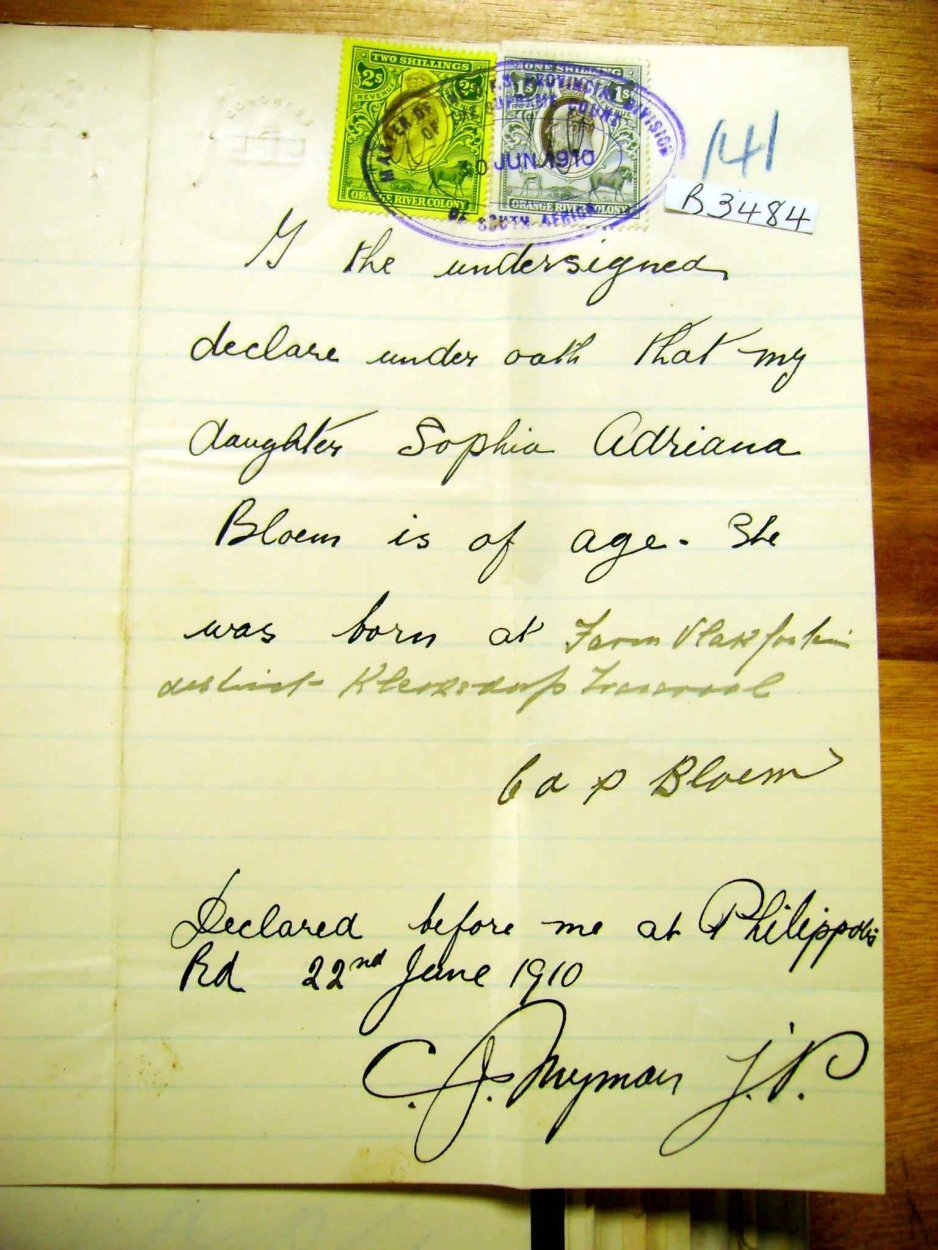 TWO SHILLINGS
2s 2s
REVENUE
ORANGE RIVER COLONY
ONE SHILLING
1s 1s
ORANGE RIVER COLONY
MASTER OF THE PROVINCIAL DIVISION
OF THE SUPREME COURT
30 JUN 1910
OF SOUTH AFRICA
141
B3484
I the undersigned
declare under oath that my
daughter Sophia Adriana
Bloem is of age. She
was born at Farm Vlakfontein
district Klerksdorp Transvaal
C a P Bloem
Declared before me at Philippolis
Rd 22nd June 1910
C. J. Muyman J.P.